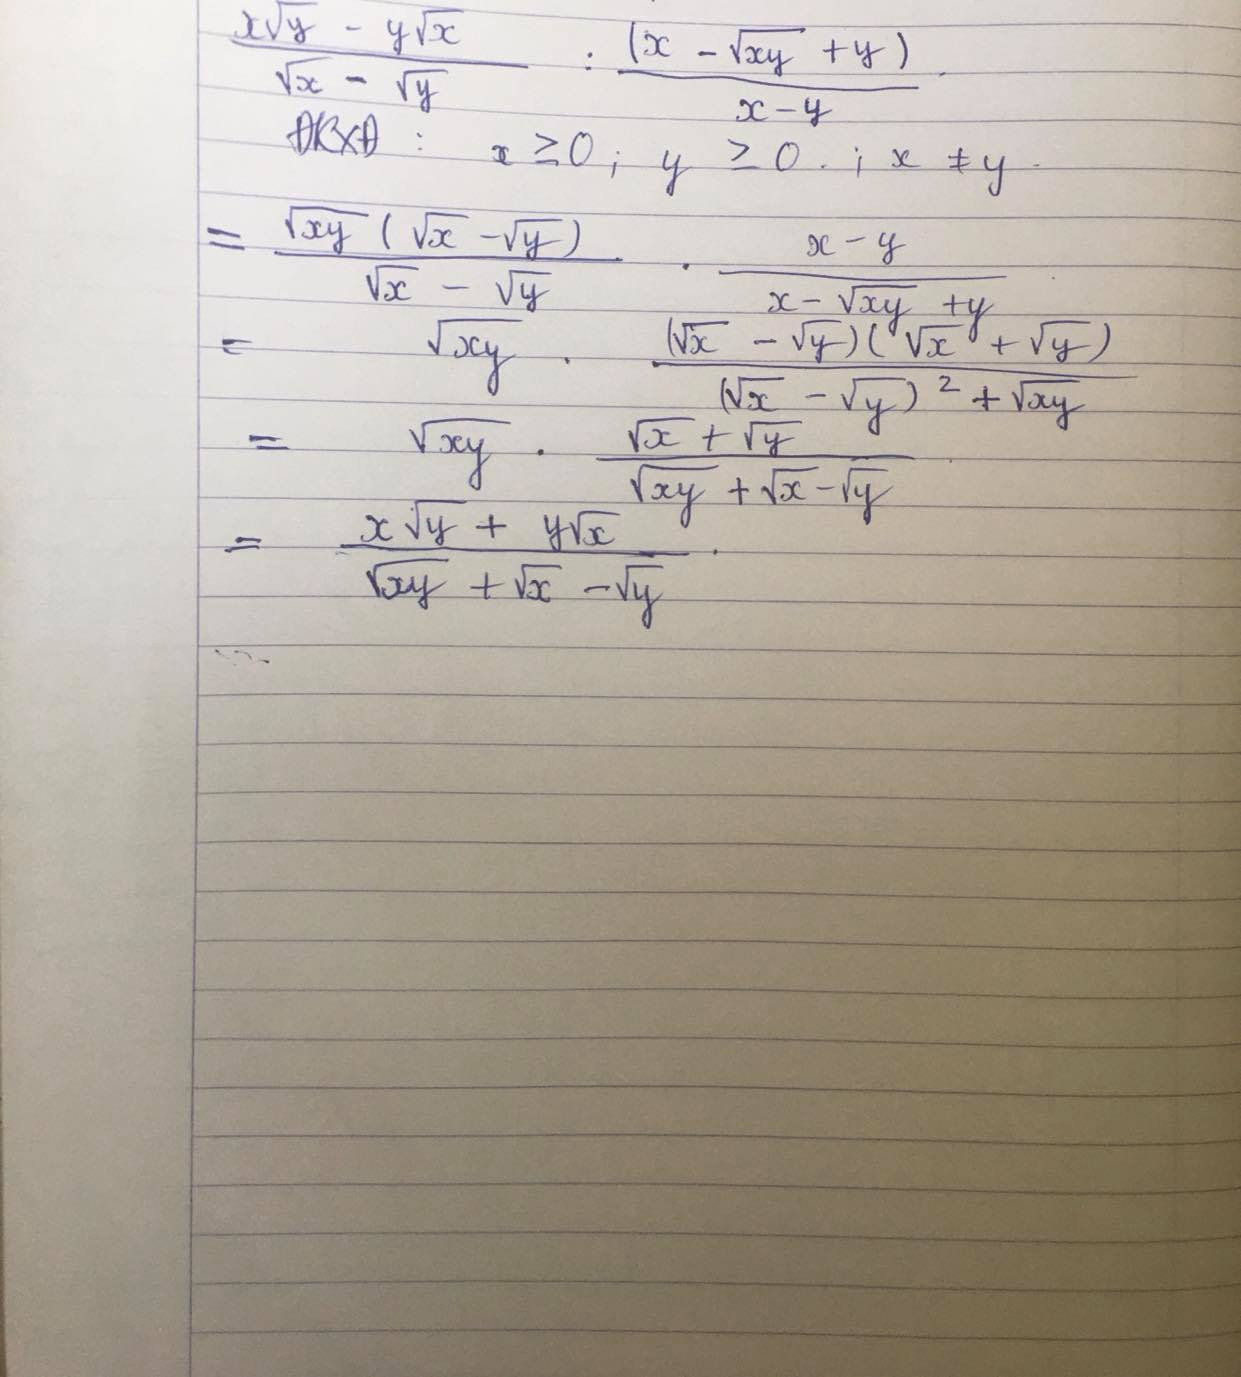 x√y - y√x / √x - √y : (x - √xy + y) / x - y
ĐKXĐ : x ≥ 0 ; y ≥ 0 . ; x ≠ y .
= √xy (√x - √y) / √x - √y . x - y / x - √xy + y
= √xy . (√x - √y)(√x + √y) / (√x - √y)² + √xy
= √xy . √x + √y / √xy + √x - √y
= x√y + y√x / √xy + √x - √y .